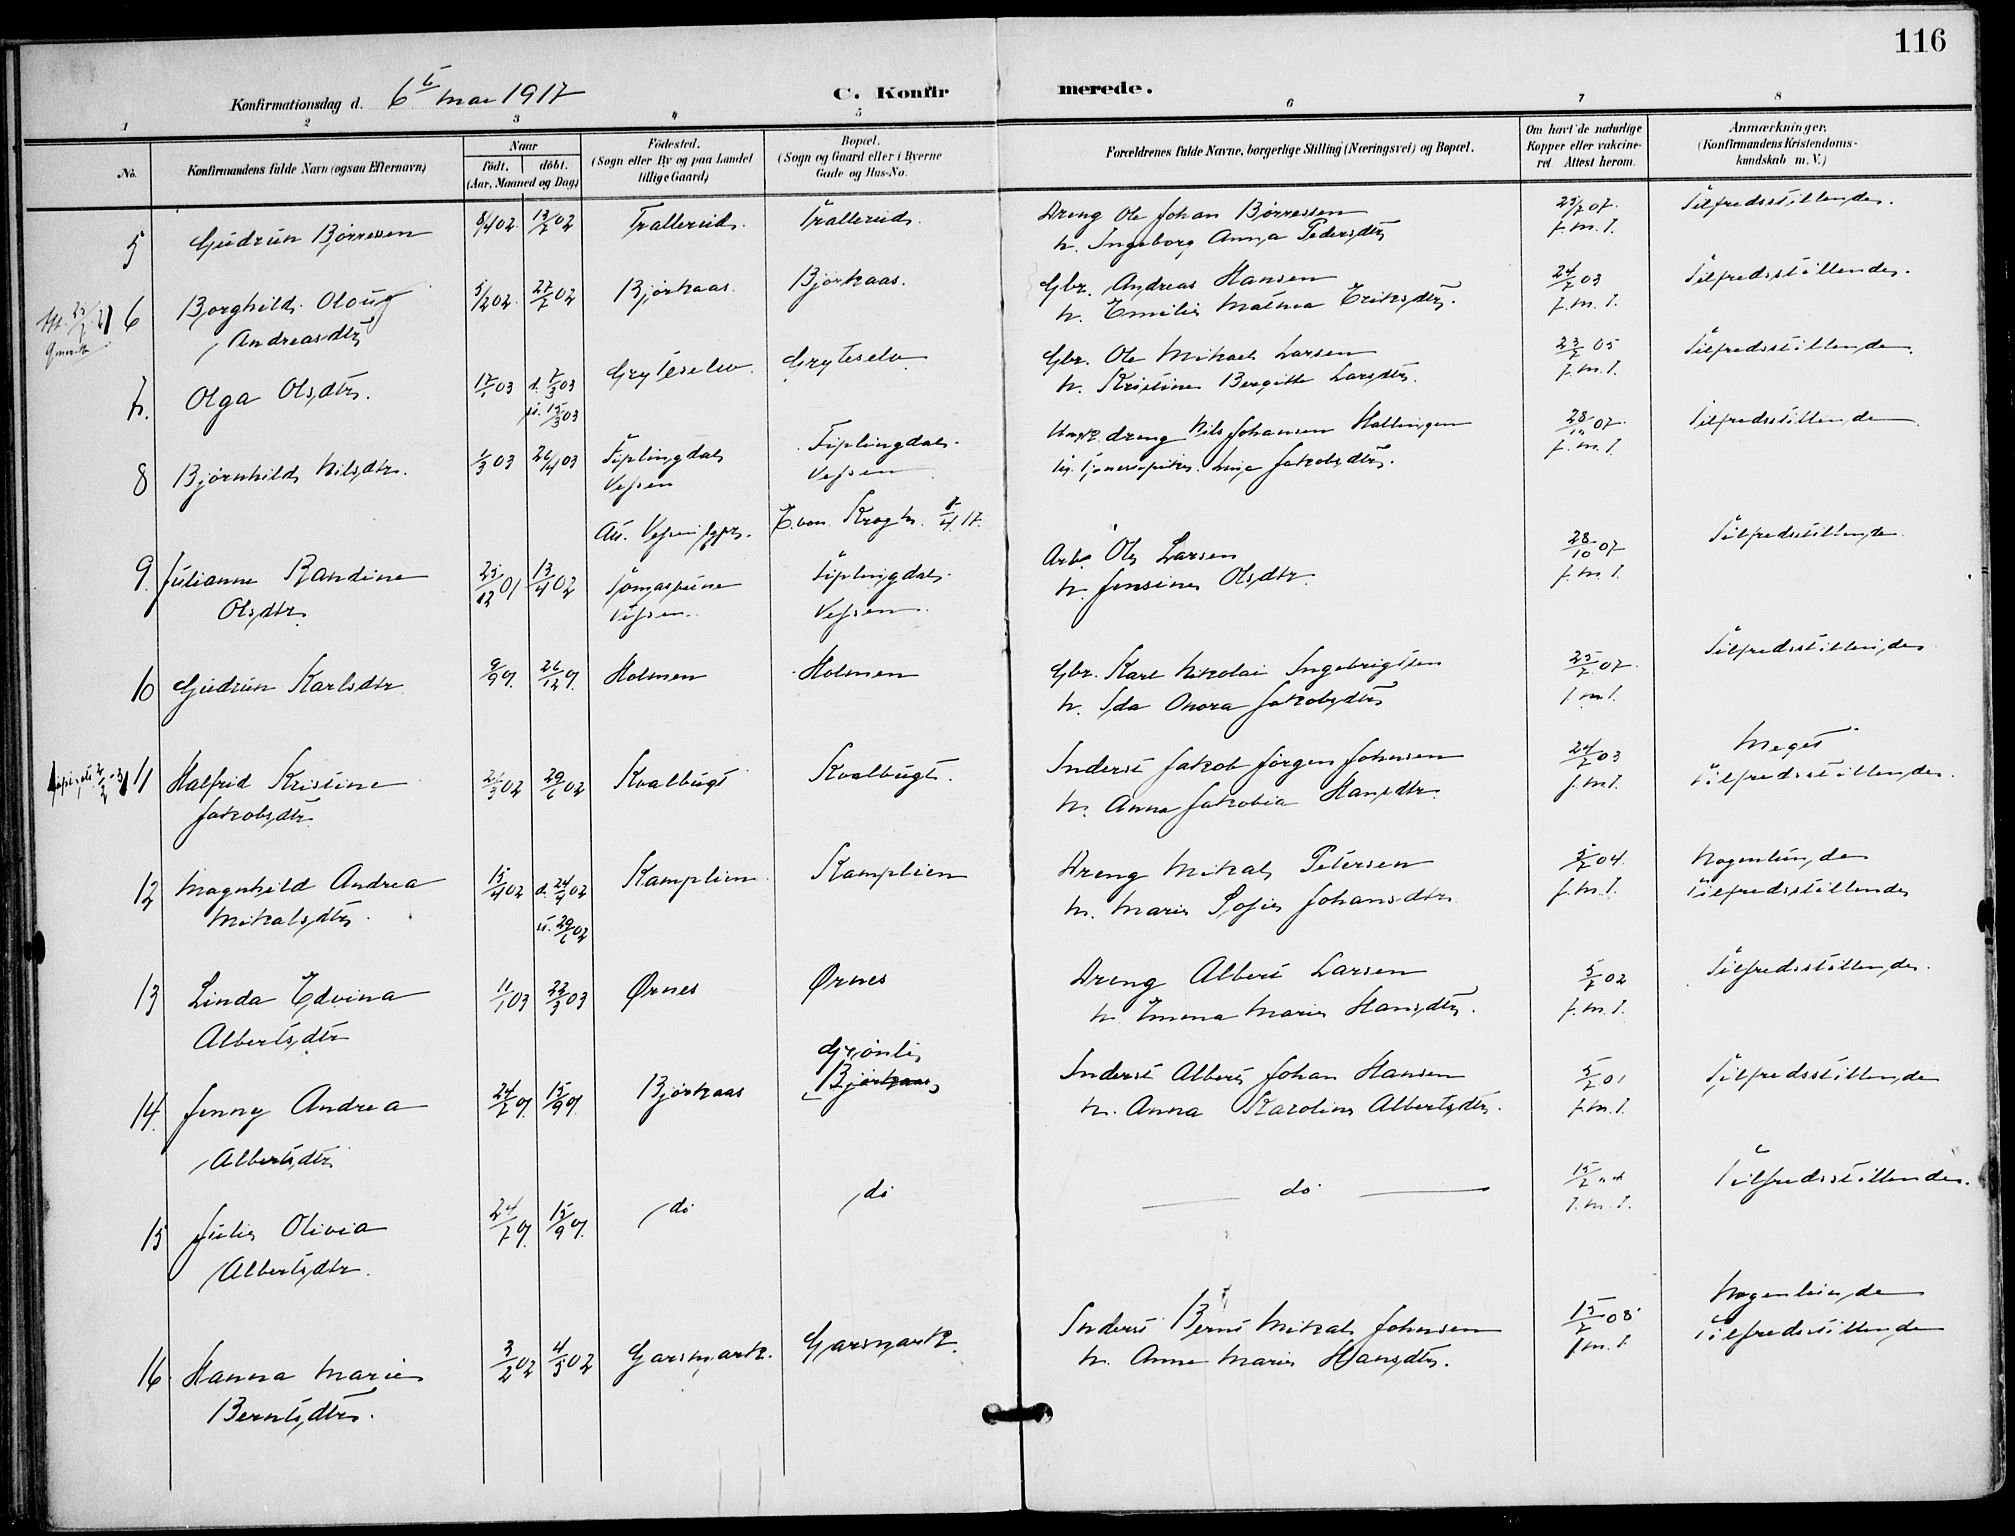 116
Konfirmationsdag d. 6te mai 1917
C. Konfirmerede.
1 2 3 4 5 6 7 8
No.
Konfirmandens fulde Navn (ogsaa Efternavn)
Naar
födt. döbt.
(Aar, Maaned og Dag)
Födested.
(Sogn eller By og paa Landet
tillige Gaard)
Bopæl.
(Sogn og Gaard eller i Byerne
Gade og Hus-No.
Forældrenes fulde Navne, borgerlige Stilling (Næringsvei) og Bopæl.
Om havt de naturlige
Kopper eller vakcine-
ret Attest herom.
Anmærkninger.
(Konfirmandens Kristendoms-
kundskab m. V.)
5 Gudrun Börresen 8/4 02 13/7 02 Trallerud. Trallerud. Dreng Ole Johan Börresen 25/7 07. Tilfredsstillende.
h. Ingeborg Anna Pedersdtr f. m. I.
6 Borghild Oloug 5/2 02. 27/7 02 Björkaas. Björkaas. Gbr. Andreas Hansen 24/7 03 Tilfredsstillende.
Andreasdtr h. Emilie Mathea Eriksdtr. f. m. I.
7. Olga Olsdtr. 17/1 03 d. 7/3 03 Gryteselv Gryteselv Gbr. Ole Mikael Larsen 23/7 05 Tilfredsstillende.
i. 15/3 03 h. Kristine Bergitte Larsdtr. f. m. I.
8 Björnhild Nilsdtr. 1/3 03 26/4 03 Tiplingdal Tiplingdal. Ungk. dreng Nils Johansen Hallingen 28/10 07. Tilfredsstillende
Vefsen Vefsen Jakobsdtr. f. m. I.
Att. Vefsen E. von Krogh. 17.
9. Julianne Randine 25/12 01 13/4 02 Tiplingdal. Arb. Ole Larsen 28/10 07 Tilfredsstillende
Olsdtr. Vefsen. Vefsen. h. Jensine Olsdtr. f. m. I.
10 Gudrun Karlsdtr 9/9 01. 26/12 01. Holmen Holmen Gbr. Karl Nikolai Ingebrigtsen 25/7 07 Tilfredsstillende
h. Ida Onora Jakobsdtr f. m. I.
11 Halfrid Kristine 21/3 02 29/6 02 Kvalbugt Kvalbugt. Inderst Jakob Jörgen Johnsen 24/7 03 Meget
Jakobsdtr. h. Anna Jakobia Hansdtr. f. m. I. tilfredsstillende.
12 Magnhild Andrea 15/4 02 d. 24/4 02 Kamplien Kamplien Dreng Mikal Petersen 5/7 04. Nogenlunde
Mikalsdtr. i. 29/6 02 h. Marie Sofie Johansdtr. f. m. I. tilfredsstillende
13 Linda Edvina 11/1 03 22/3 03 Ørnes Ørnes Dreng Albert Larsen 5/7 02 Tilfredsstillende.
Albertsdtr h. Emma Marie Hansdtr. f. m. I.
Grönli
14. Jenny Andrea 24/7 01. 15/9 01. Björkaas Björkaas Inderst Albert Johan Hansen 5/7 01 Tilfredsstillende
Albertsdtr h. Anna Karoline Albertsdtr. f. m. I.
15 Julie Olivia 24/7 01. 15/9 01. do do do Tilfredsstillende.
Albertsdtr. f. m. I.
16 Hanna Marie 3/2 02 4/5 02 Garsmark. Garsmark. Inderst Bernt Mikal Johnsen 15/7 08. Nogenlunde
Berntsdtr. h. Anne Marie Hansdtr. f. m. I. tilfredsstillende